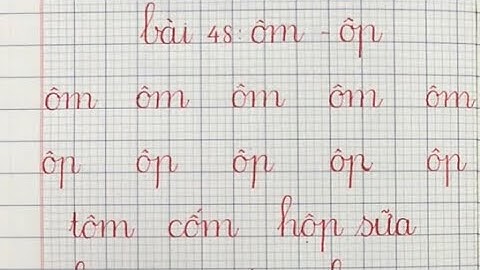 bài 48: ôm - ôp
ôm ôm ôm ôm ôm
ôp ôp ôp ôp ôp
tôm cốm hộp sữa